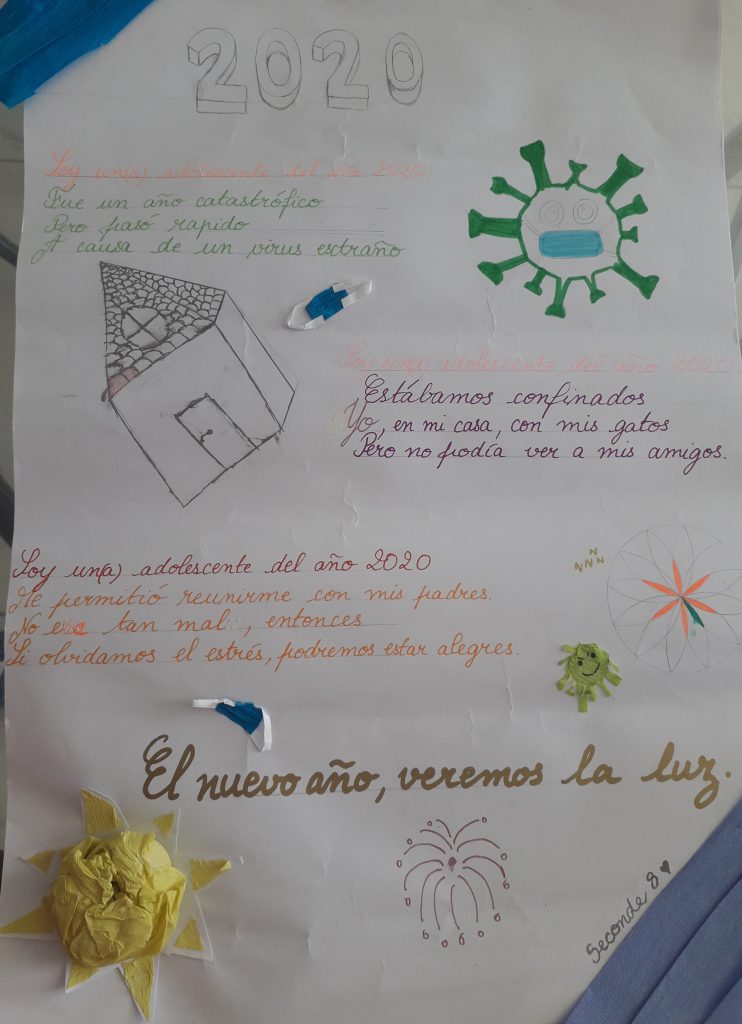 2020
Soy un(a) adolescente del año 2020
Fue un año catastrófico
Pero pasó rapido
A causa de un virus extraño
Soy un(a) adolescente del año 2020
Estábamos confinados
Yo, en mi casa, con mis gatos
Pero no podía ver a mis amigos.
Soy un(a) adolescente del año 2020
Me permitió reunirme con mis padres.
No tan mal, entonces
Si olvidamos el estrés, podremos estar alegres.
El nuevo año, veremos la luz.
Seconde 8